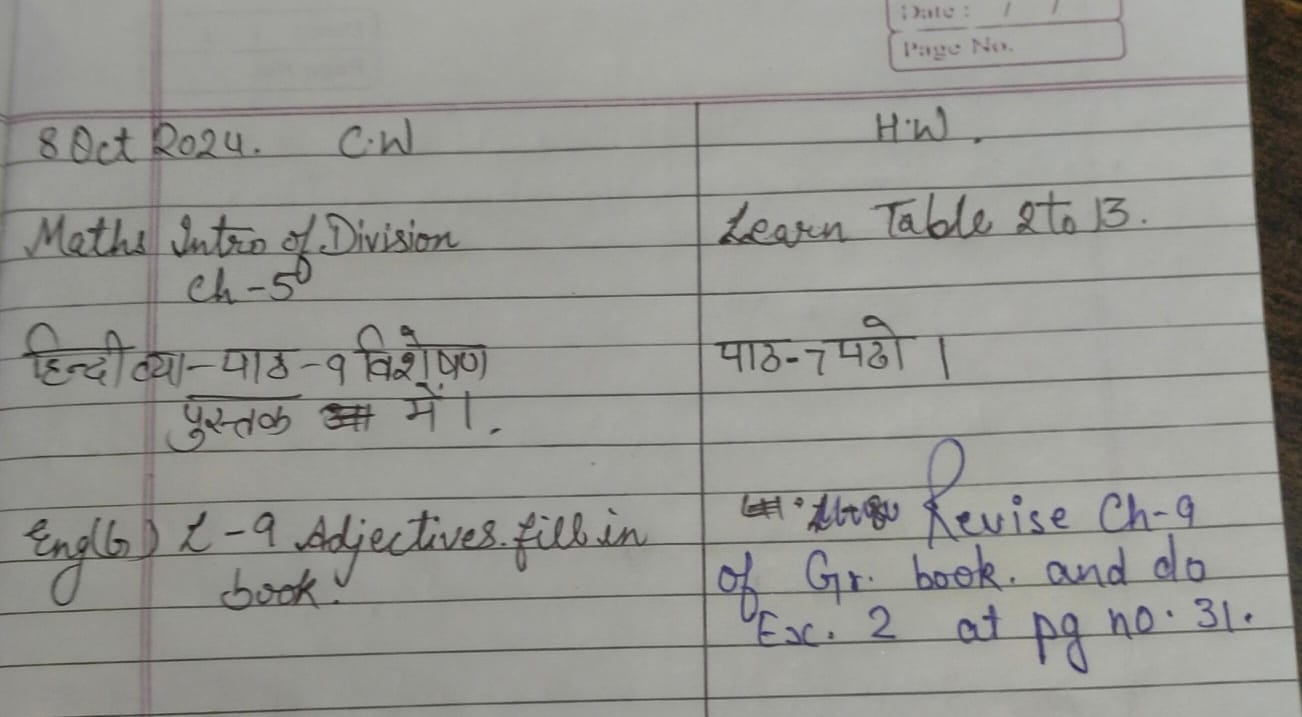 Date : / /
Page No.
8 Oct 2024. C.W
H.W.
Maths Intro of Division
Learn Table 2 to 13.
Ch - 5
हिन्दी व्या - पाठ - 9 विशेषण
पाठ - 7 पढो ।
पुस्तक में ।.
Eng(G) L - 9 Adjectives. fill in
Revise Ch - 9
book.
of Gr. book. and do
Ex. 2 at pg no. 31.